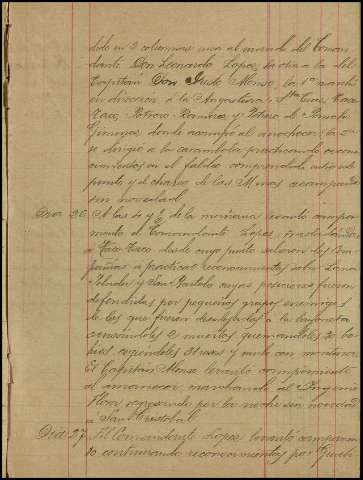 dido en 2 columnas una al mando del Coman
dante Don Leonardo Lopez, la otra a la del
Capitán Don Justo Alonso; la 1ª marchó
en direccion á la Angostura, Sta Cruz, Taco
Taco, Potrero Ramirez y Potrero de Pancho
donde acampó al anochecer; la 2ª
se dirigió á la carambola practicando recono
cimientos en el faldeo comprendido entre este
punto y el charco de las Minas acampando
sin novedad
Dia 26 A las 4 y ½ de la mañana levantó campa
mento el Comandante Lopez,
á Taco Taco desde cuyo punto salieron las Com
pañías á practicar reconocimientos sobre Loma
y San Bartolo cuyas posiciones fueron
defendidas por pequeños grupos enemigos
de las que fueron desalojados a la bayoneta
causándoles 2 muertos quemándoles 30 bo
hios, cogiéndoles y mulo con monturas.
El Capitán Alonso levantó campamento
al amanecer marchando al Ingenio
regresando por la noche sin novedad
á San Cristobal
Dia 27 El Comandante Lopez levantó campamen
to continuando reconocimientos por